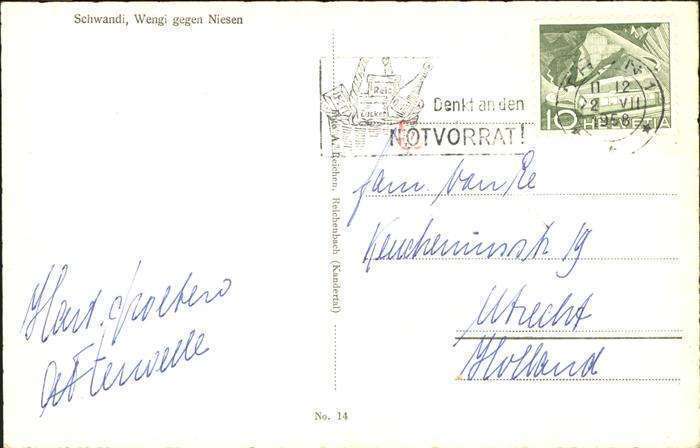 Schwandi, Wengi gegen Niesen
Reis
Zucker
Denkt an den
NOTVORRAT!
THUN 1
11 12
2 VII
1958
10 HELVETIA
A. Reichen, Reichenbach (Kandertal)
Fam. van Re
19
Utrecht
Holland
Hart. groeten
No. 14